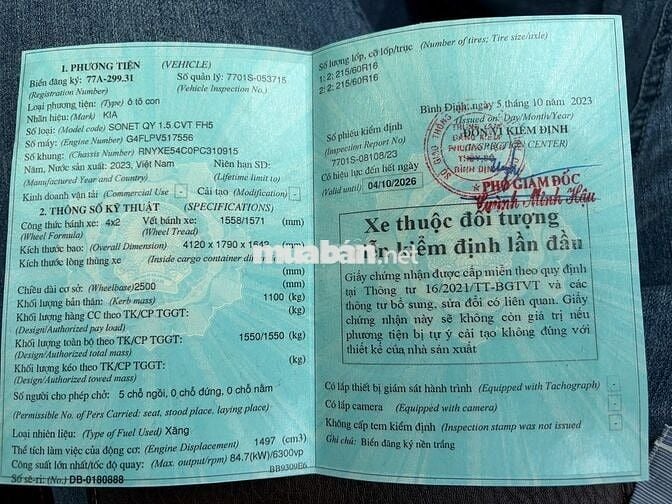 1. PHƯƠNG TIỆN (VEHICLE)
Biển đăng ký: 77A-299.31 Số quản lý: 7701S-053715
(Registration Number) (Vehicle Inspection No.)
Loại phương tiện: (Type) ô tô con
Nhãn hiệu: (Mark) KIA
Số loại: (Model code) SONET QY 1.5 CVT FH5
Số máy: (Engine Number) G4FLPV517556
Số khung: (Chassis Number) RNYXE54C0PC310915
Năm, Nước sản xuất: 2023, Việt Nam Niên hạn SD:
(Manufactured Year and Country) (Lifetime limit to)
Kinh doanh vận tải (Commercial Use) - Cải tạo (Modification) -
2. THÔNG SỐ KỸ THUẬT (SPECIFICATIONS)
Công thức bánh xe: 4x2 Vết bánh xe: 1558/1571 (mm)
(Wheel Formula) (Wheel Tread)
Kích thước bao: (Overall Dimension) 4120 x 1790 x 1642 (mm)
Kích thước lòng thùng xe (Inside cargo container
(mm)
Chiều dài cơ sở: (Wheelbase) 2500 (mm)
Khối lượng bản thân: (Kerb mass) 1100 (kg)
Khối lượng hàng CC theo TK/CP TGGT: (kg)
(Design/Authorized pay load)
Khối lượng toàn bộ theo TK/CP TGGT: 1550/1550 (kg)
(Design/Authorized total mass)
Khối lượng kéo theo TK/CP TGGT: (kg)
(Design/Authorized towed mass)
Số người cho phép chở: 5 chỗ ngồi, 0 chỗ đứng, 0 chỗ nằm
(Permissible No. of Pers Carried: seat, stood place, laying place)
Loại nhiên liệu: (Type of Fuel Used) Xăng
Thể tích làm việc của động cơ: (Engine Displacement) 1497 (cm3)
Công suất lớn nhất/tốc độ quay: (Max. output/rpm) 84.7(kW)/6300vp
BB9309E6
Số sê-ri: (No.) DB-0180888
Số lượng lốp, cỡ lốp/trục (Number of tires; Tire size/axle)
1: 2; 215/60R16
2: 2; 215/60R16
Bình Định, ngày 5 tháng 10 năm 2023
(Issued on: Day/Month/Year)
Số phiếu kiểm định ĐƠN VỊ KIỂM ĐỊNH
(Inspection Report No) (INSPECTION CENTER)
7701S-08108/23
Có hiệu lực đến hết ngày
(Valid until) 04/10/2026
PHÓ GIÁM ĐỐC
Huỳnh Minh Hậu
Xe thuộc đối tượng
kiểm định lần đầu
muaban.net
Giấy chứng nhận được cấp miễn theo quy định
tại Thông tư 16/2021/TT-BGTVT và các
thông tư bổ sung, sửa đổi có liên quan. Giấy
chứng nhận này sẽ không còn giá trị nếu
phương tiện bị tự ý cải tạo không đúng với
thiết kế của nhà sản xuất
Có lắp thiết bị giám sát hành trình (Equipped with Tachograph)
Có lắp camera (Equipped with camera)
Không cấp tem kiểm định (Inspection stamp was not issued
Ghi chú: Biển đăng ký nền trắng